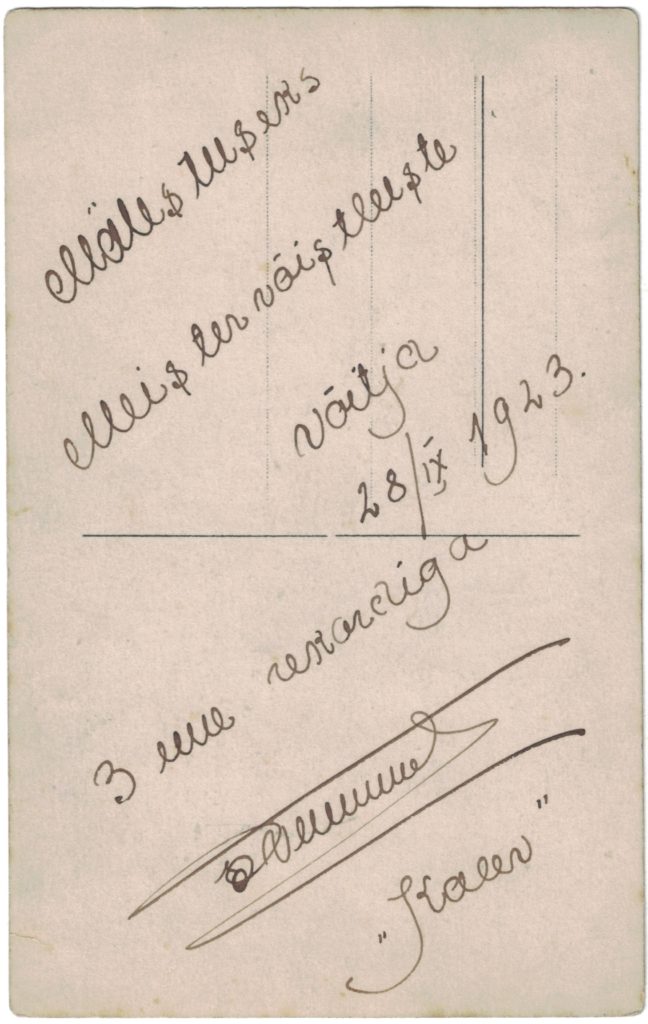 Mälestuseks
Meister võistluste
võitja
28/IX 1923.
3 me rekordiga
"Kalev"